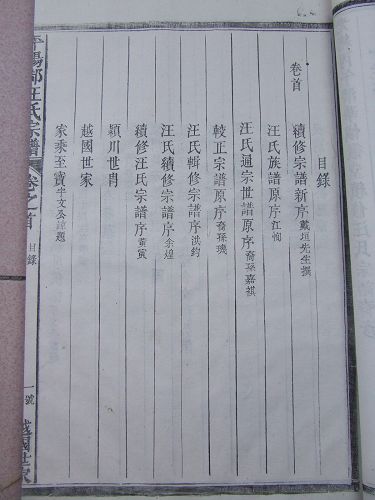 目錄
卷首
續修宗譜新序 戴垣先生撰
汪氏族譜原序 江恂
汪氏通宗世譜原序 裔孫嘉祺
較正宗譜原序 裔孫璣
汪氏輯修宗譜序 洪鈞
汪氏續修宗譜序 余煌
續修汪氏宗譜序 黃寅
潁川世冑
越國世家
家乘至寶 半文公諒題
平陽郡汪氏宗譜 卷之首 目錄 一號 越國世家